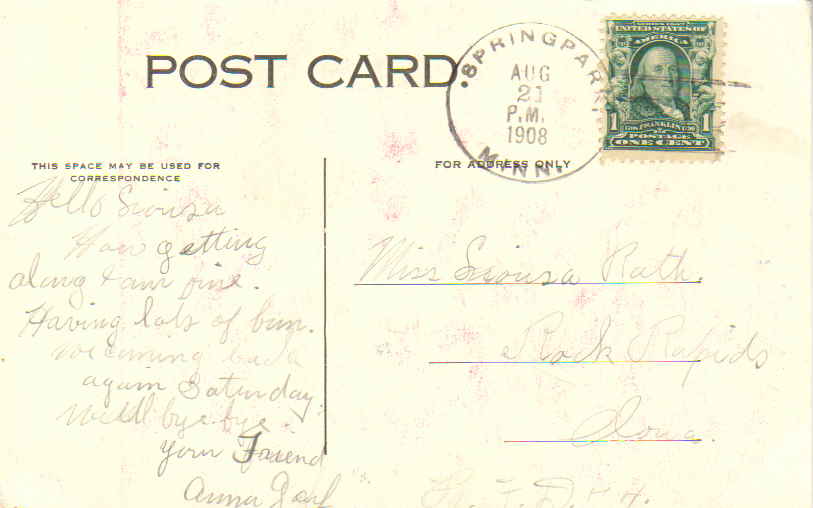 POST CARD.
SPRINGPARK,
AUG
21
P.M.
1908
MINN.
SERIES 1902
UNITED STATES OF
AMERICA
1 FRANKLIN 1
POSTAGE
ONE CENT
THIS SPACE MAY BE USED FOR
CORRESPONDENCE
FOR ADDRESS ONLY
Hello Siousa
How getting
along I am fine.
Having lots of fun.
coming back
again Saturday
Well bye bye.
your Friend
Anna
Miss Siousa Rath.
Rock Rapids
Iowa.
R. F. D. # 4.